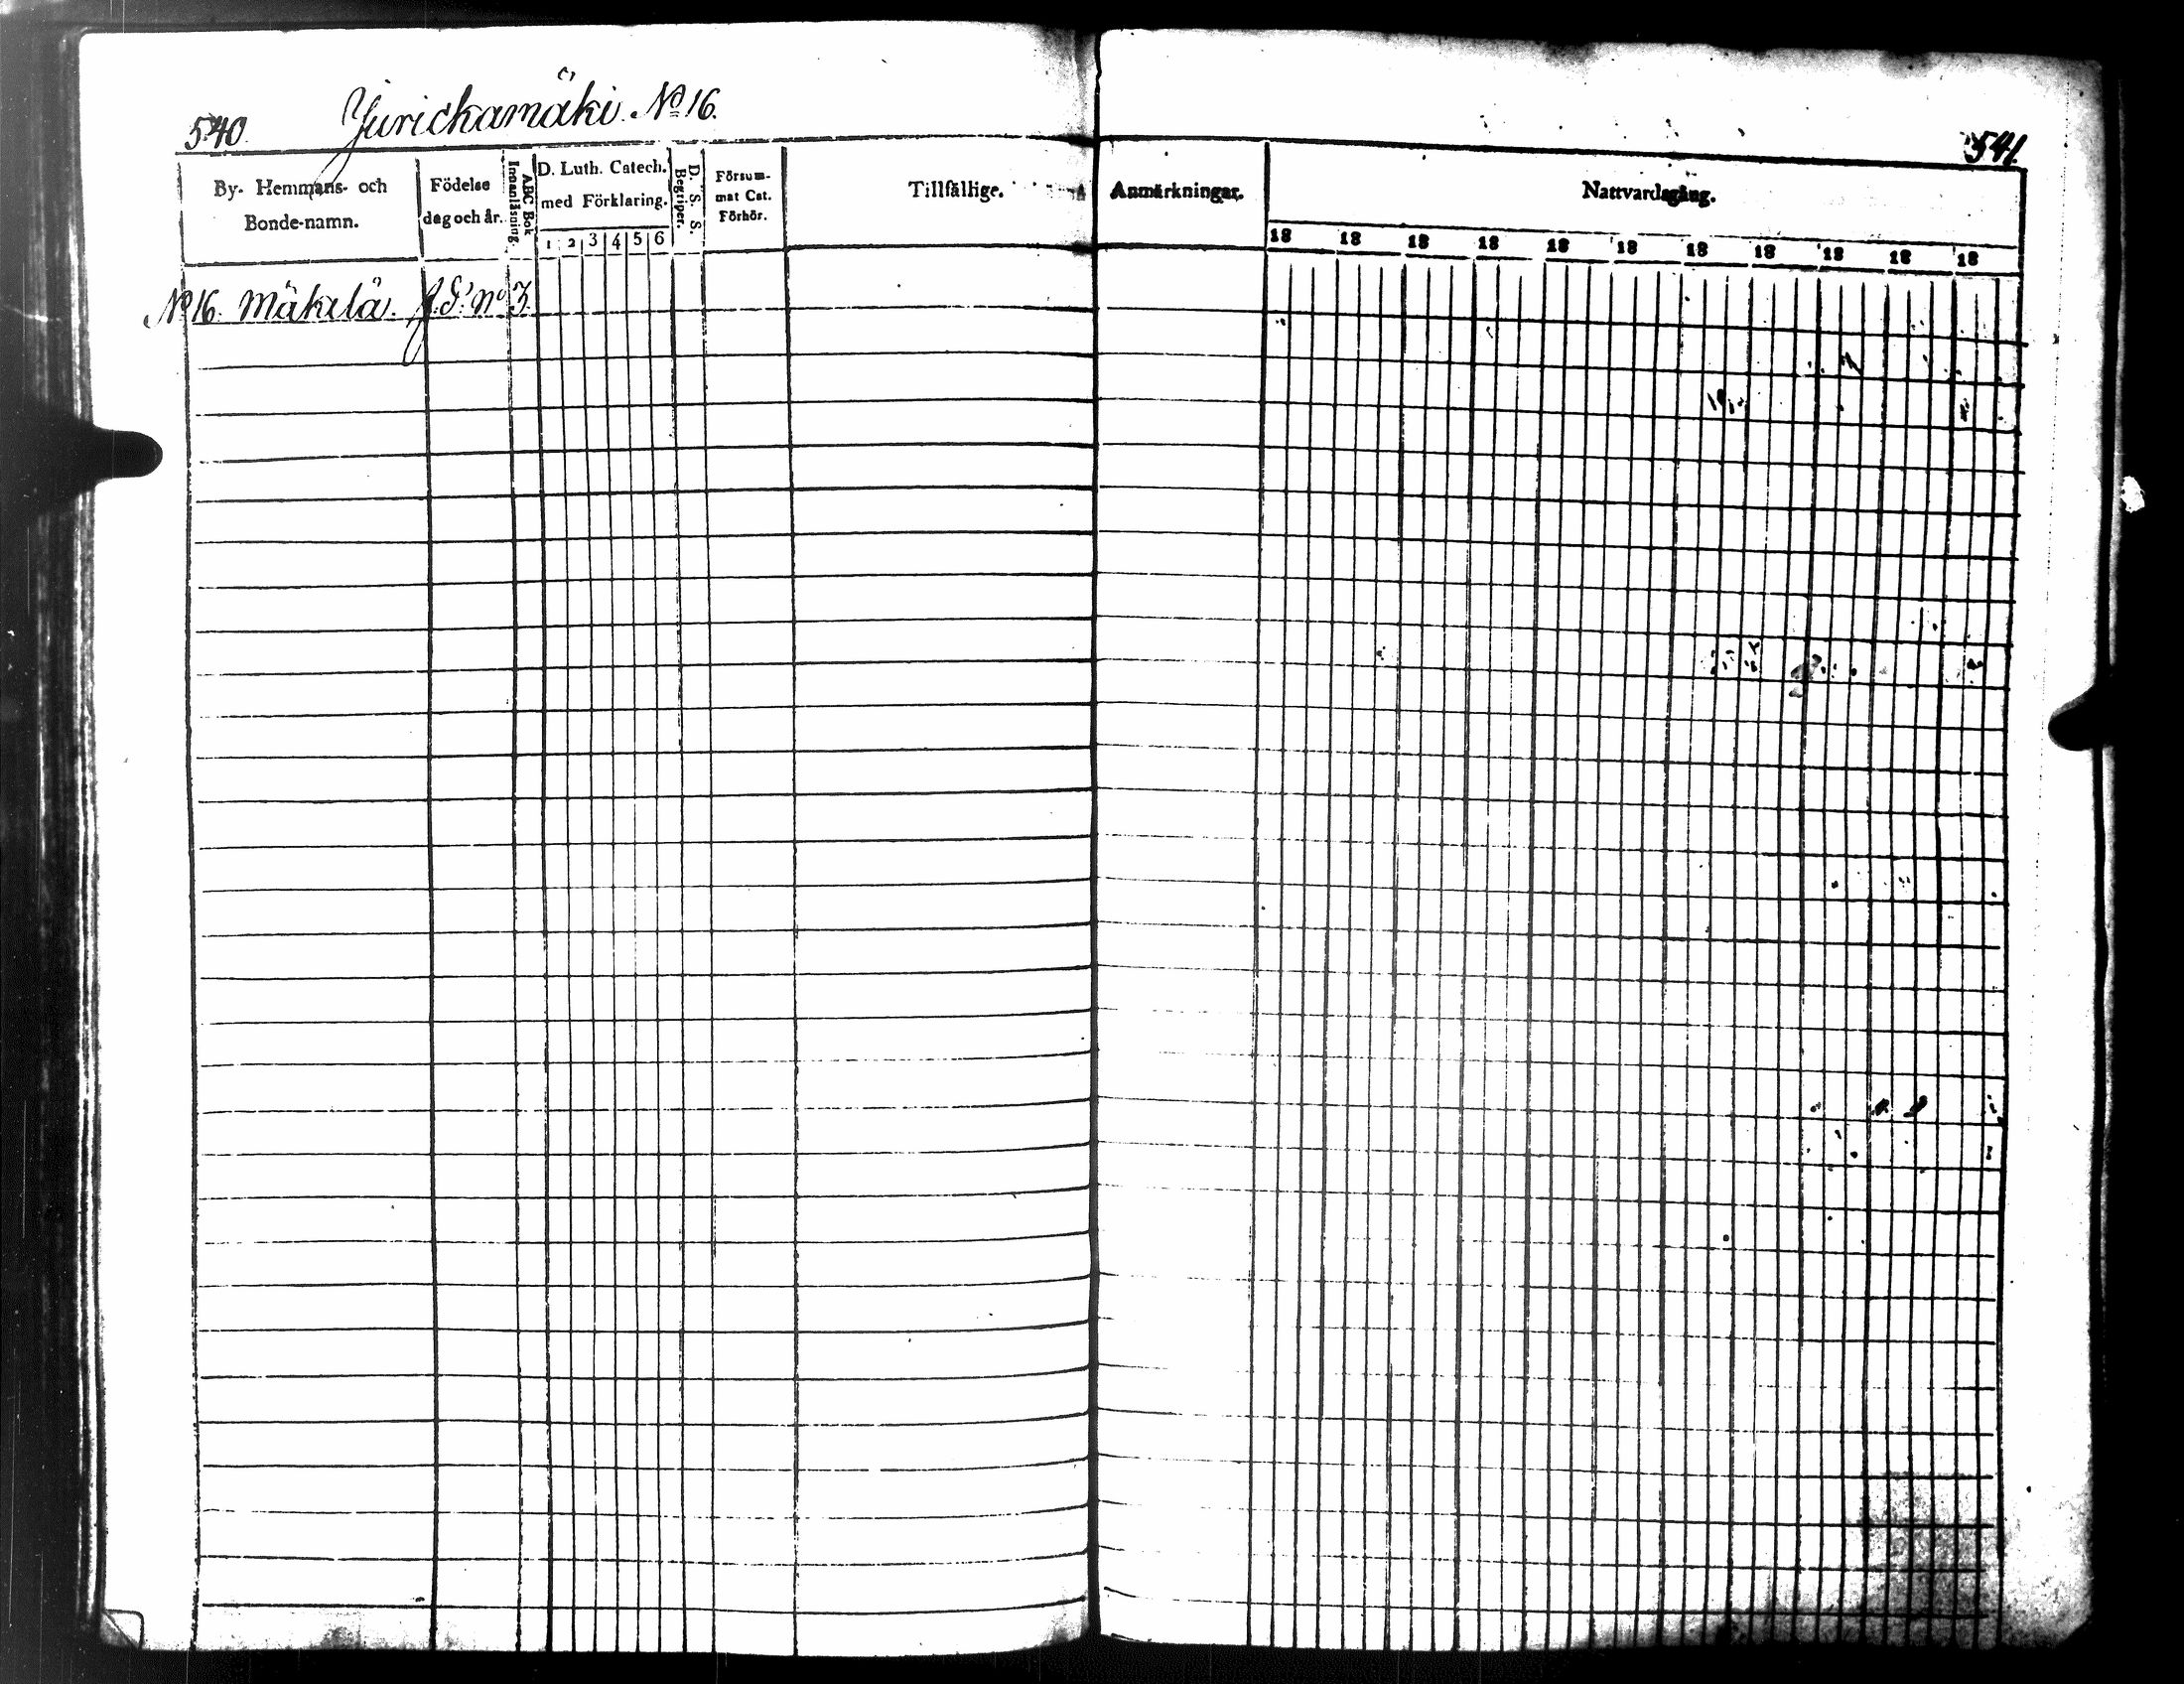 540. Jurickamäki. No 16.
541.
By- Hemmans- och Bonde-namn.
Födelse dag och år.
ABC Bok Innanläsning.
D. Luth. Catech. med Förklaring.
1 2 3 4 5 6
D. S. S. Begriper.
Försum-
mat Cat.
Förhör.
Tillfällige.
Anmärkningar.
Nattvardsgång.
18 18 18 18 18 18 18 18 18 18 18
No 16. Mäkelä. No 3.